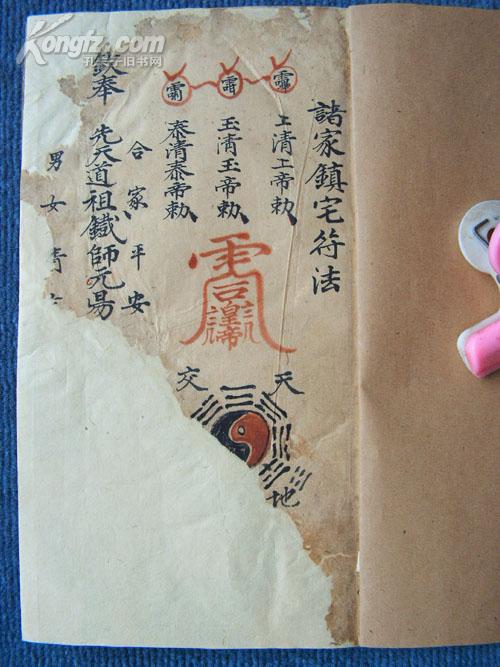 Kongfz.com
孔夫子旧书网
諸家鎮宅符法
上清上帝勅
玉清玉帝勅
泰清泰帝勅
天
地
交
合家平安
奉
先天道祖鐵師元昜
男女